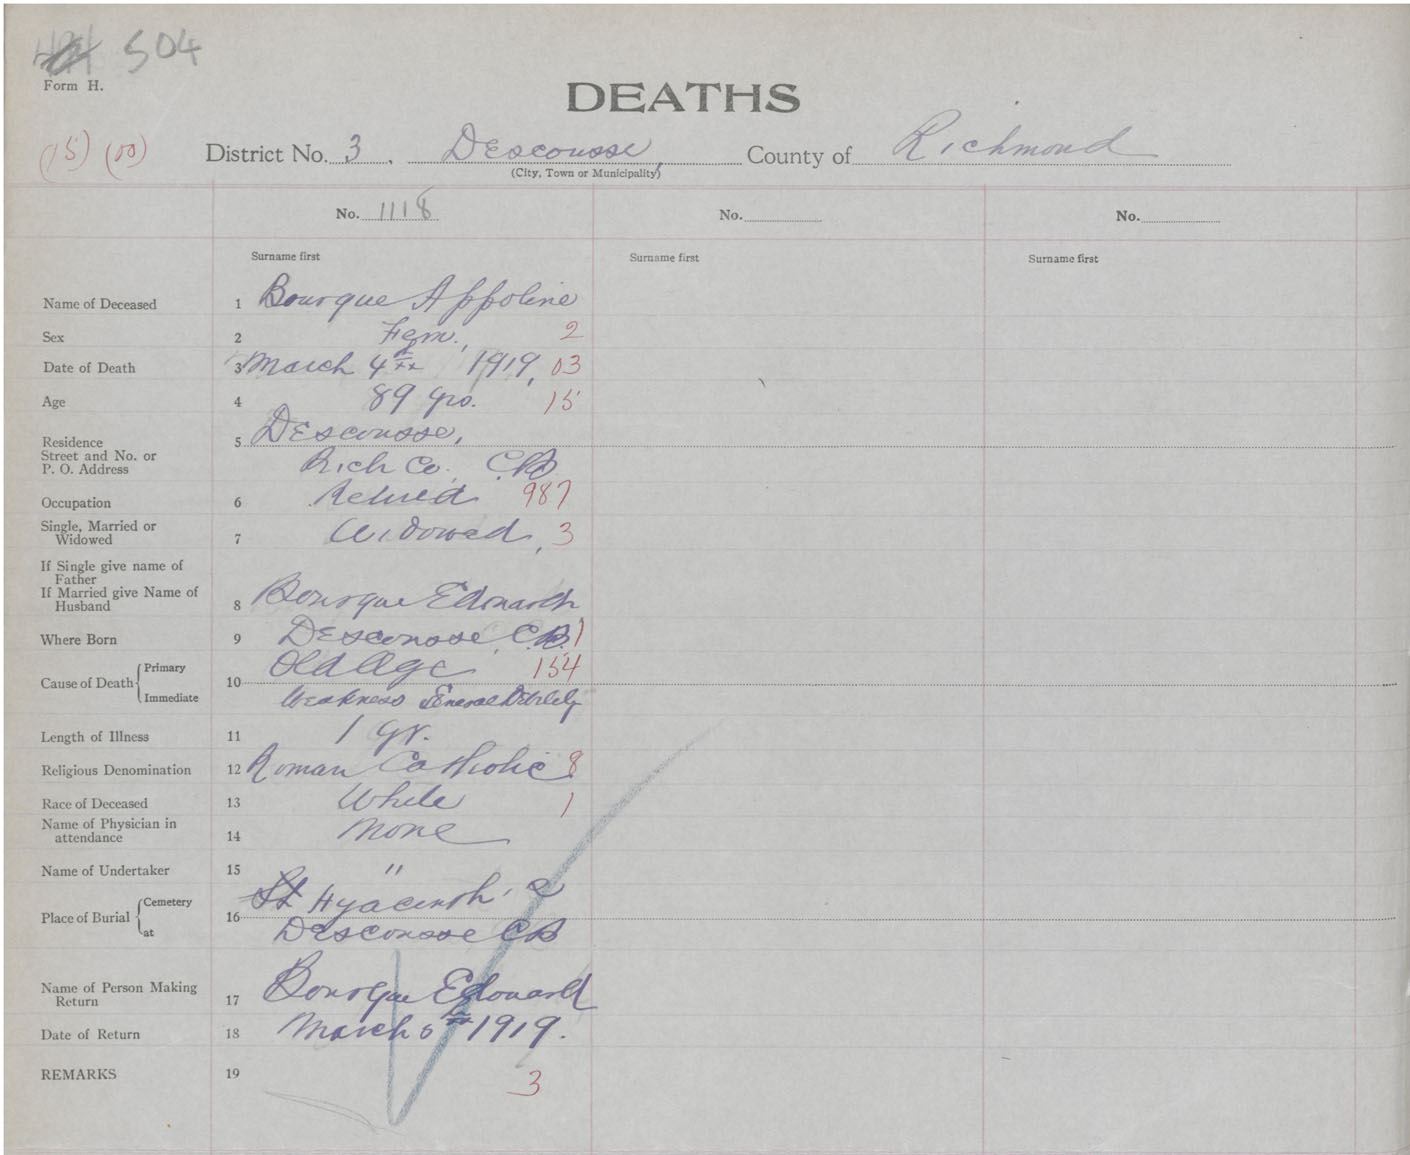 504
Form H.
DEATHS
(15) (00) District No. 3, Descousse, County of Richmond
(City, Town or Municipality)
No. 1118 No. No.
Surname first Surname first Surname first
Name of Deceased 1 Bourque Appoline
Sex 2 Fem., 2
Date of Death 3 March 4th 1919, 03
Age 4 89 yrs. 15
Residence 5 Descousse,
Street and No. or
P. O. Address Rich Co. C.B
Occupation 6 Retired 987
Single, Married or
Widowed 7 Widowed, 3
If Single give name of
Father
If Married give Name of
Husband 8 Bourque Edouard
Where Born 9 Descousse, C.B. 1
Cause of Death Primary 10 Old Age 154
Immediate Weakness General Debility
Length of Illness 11 1 yr.
Religious Denomination 12 Roman Catholic 8
Race of Deceased 13 White 1
Name of Physician in
attendance 14 None
Name of Undertaker 15 "
Place of Burial Cemetery 16 St Hyacinth'
at Descousse CB
Name of Person Making
Return 17 Bourque Edouard
Date of Return 18 March th 1919.
REMARKS 19 3